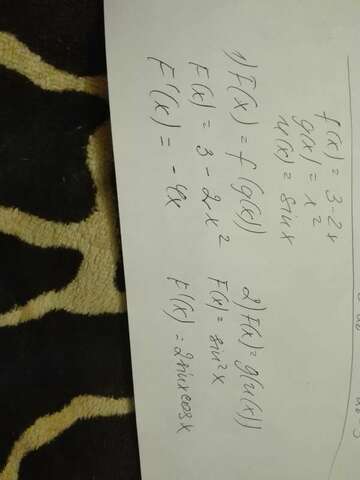 f(x) = 3-2x
g(x) = x²
u(x) = sin x
1) F(x) = f(g(x))
F(x) = 3 - 2x²
F'(x) = - 4x
2) F(x) = g(u(x))
F(x) = sin²x
F'(x) = 2sinxcosx